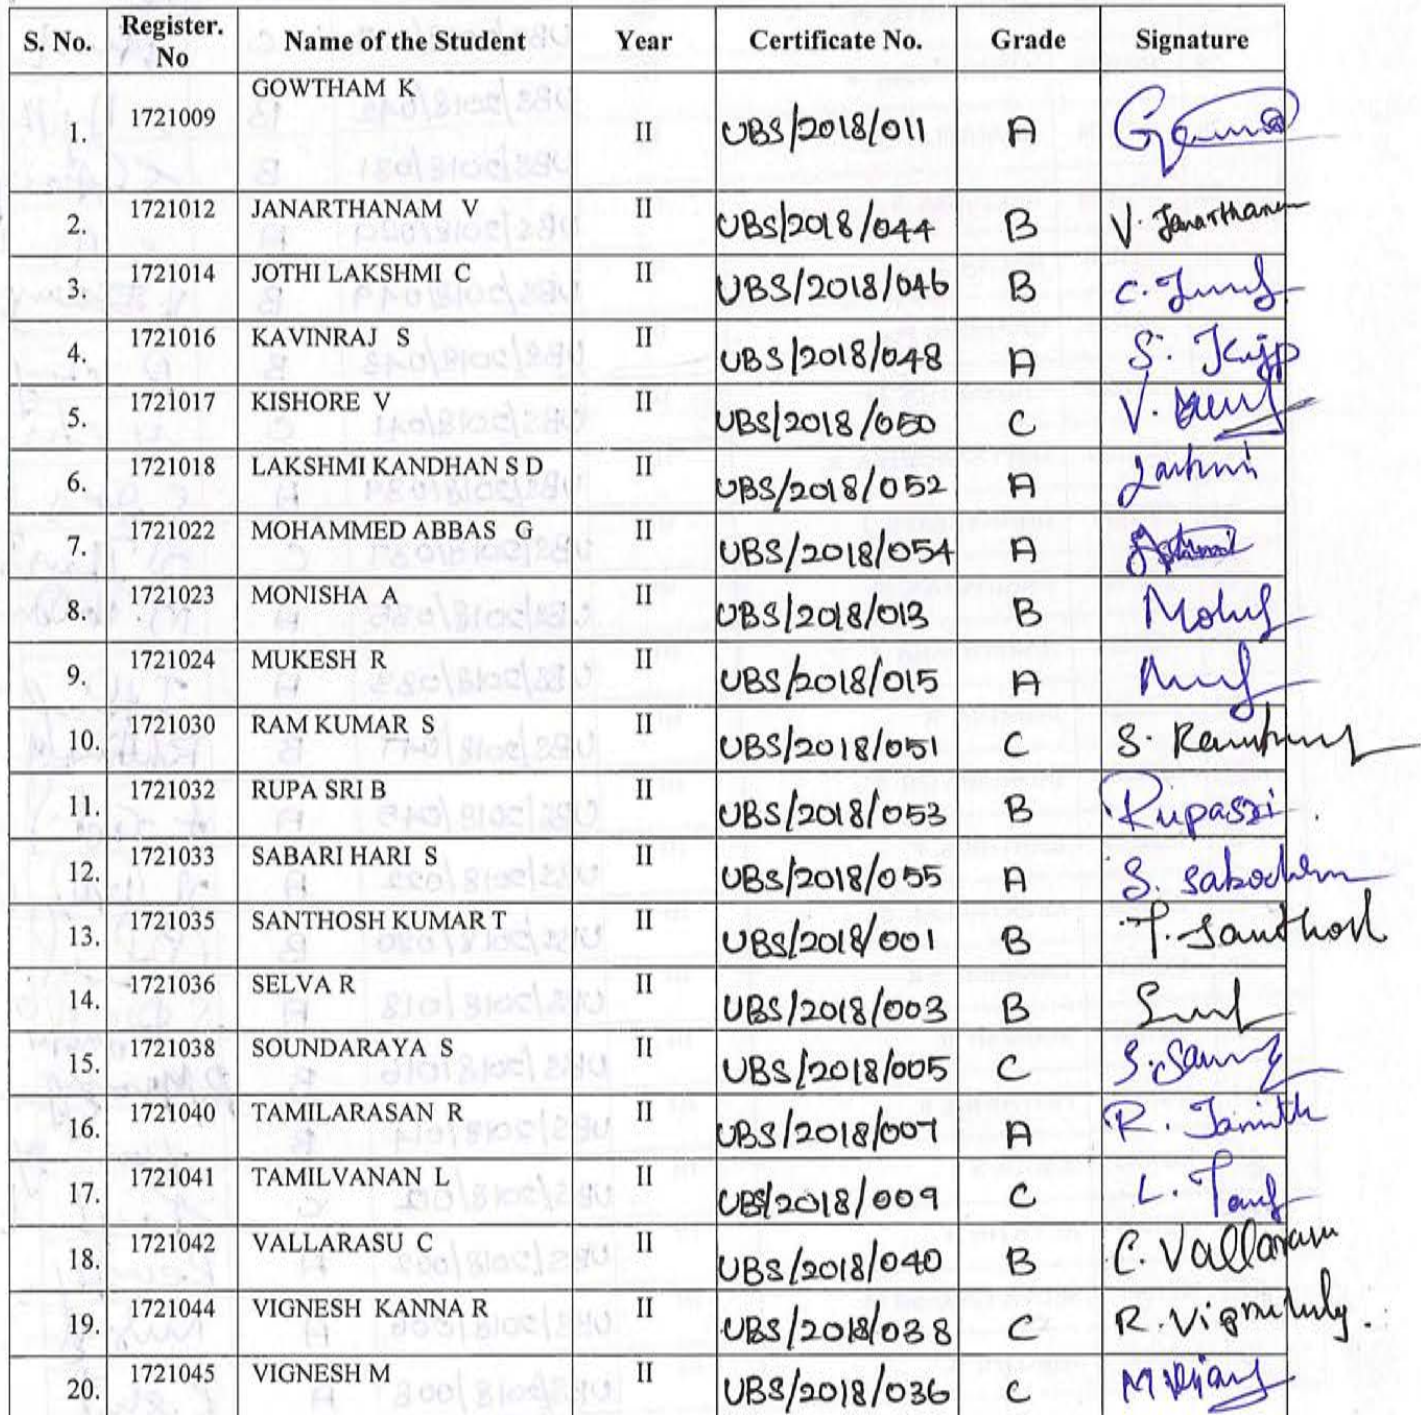 S. No. Register. No Name of the Student Year Certificate No. Grade Signature
1. 1721009 GOWTHAM K II UBS/2018/011 A
2. 1721012 JANARTHANAM V II UBS/2018/044 B V. Janarthanam
3. 1721014 JOTHI LAKSHMI C II UBS/2018/046 B C.
4. 1721016 KAVINRAJ S II UBS/2018/048 A S.
5. 1721017 KISHORE V II UBS/2018/050 C V.
6. 1721018 LAKSHMI KANDHAN S D II UBS/2018/052 A
7. 1721022 MOHAMMED ABBAS G II UBS/2018/054 A
8. 1721023 MONISHA A II UBS/2018/013 B
9. 1721024 MUKESH R II UBS/2018/015 A
10. 1721030 RAM KUMAR S II UBS/2018/051 C S.
11. 1721032 RUPA SRI B II UBS/2018/053 B Rupasri
12. 1721033 SABARI HARI S II UBS/2018/055 A S.
13. 1721035 SANTHOSH KUMAR T II UBS/2018/001 B T. Santhosh
14. 1721036 SELVA R II UBS/2018/003 B
15. 1721038 SOUNDARAYA S II UBS/2018/005 C S.
16. 1721040 TAMILARASAN R II UBS/2018/007 A R.
17. 1721041 TAMILVANAN L II UBS/2018/009 C L.
18. 1721042 VALLARASU C II UBS/2018/040 B C.
19. 1721044 VIGNESH KANNA R II UBS/2018/038 C R.
20. 1721045 VIGNESH M II UBS/2018/036 C M